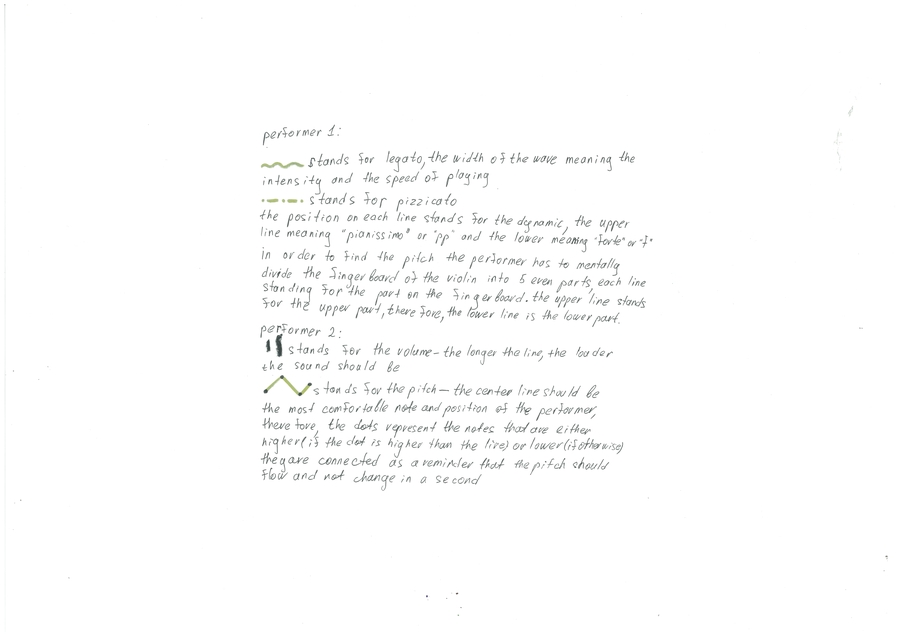 performer 1:
stands for legato, the width of the wave meaning the
intensity and the speed of playing
stands for pizzicato
the position on each line stands for the dynamic, the upper
line meaning "pianissimo" or "pp" and the lower meaning "forte" or "f"
in order to find the pitch the performer has to mentally
divide the fingerboard of the violin into 5 even parts, each line
standing for the part on the fingerboard. the upper line stands
for the upper part, therefore, the lower line is the lower part.
performer 2:
stands for the volume - the longer the line, the louder
the sound should be
stands for the pitch - the center line should be
the most comfortable note and position of the performer,
therefore, the dots represent the notes that are either
higher (if the dot is higher than the line) or lower (if otherwise)
they are connected as a reminder that the pitch should
flow and not change in a second